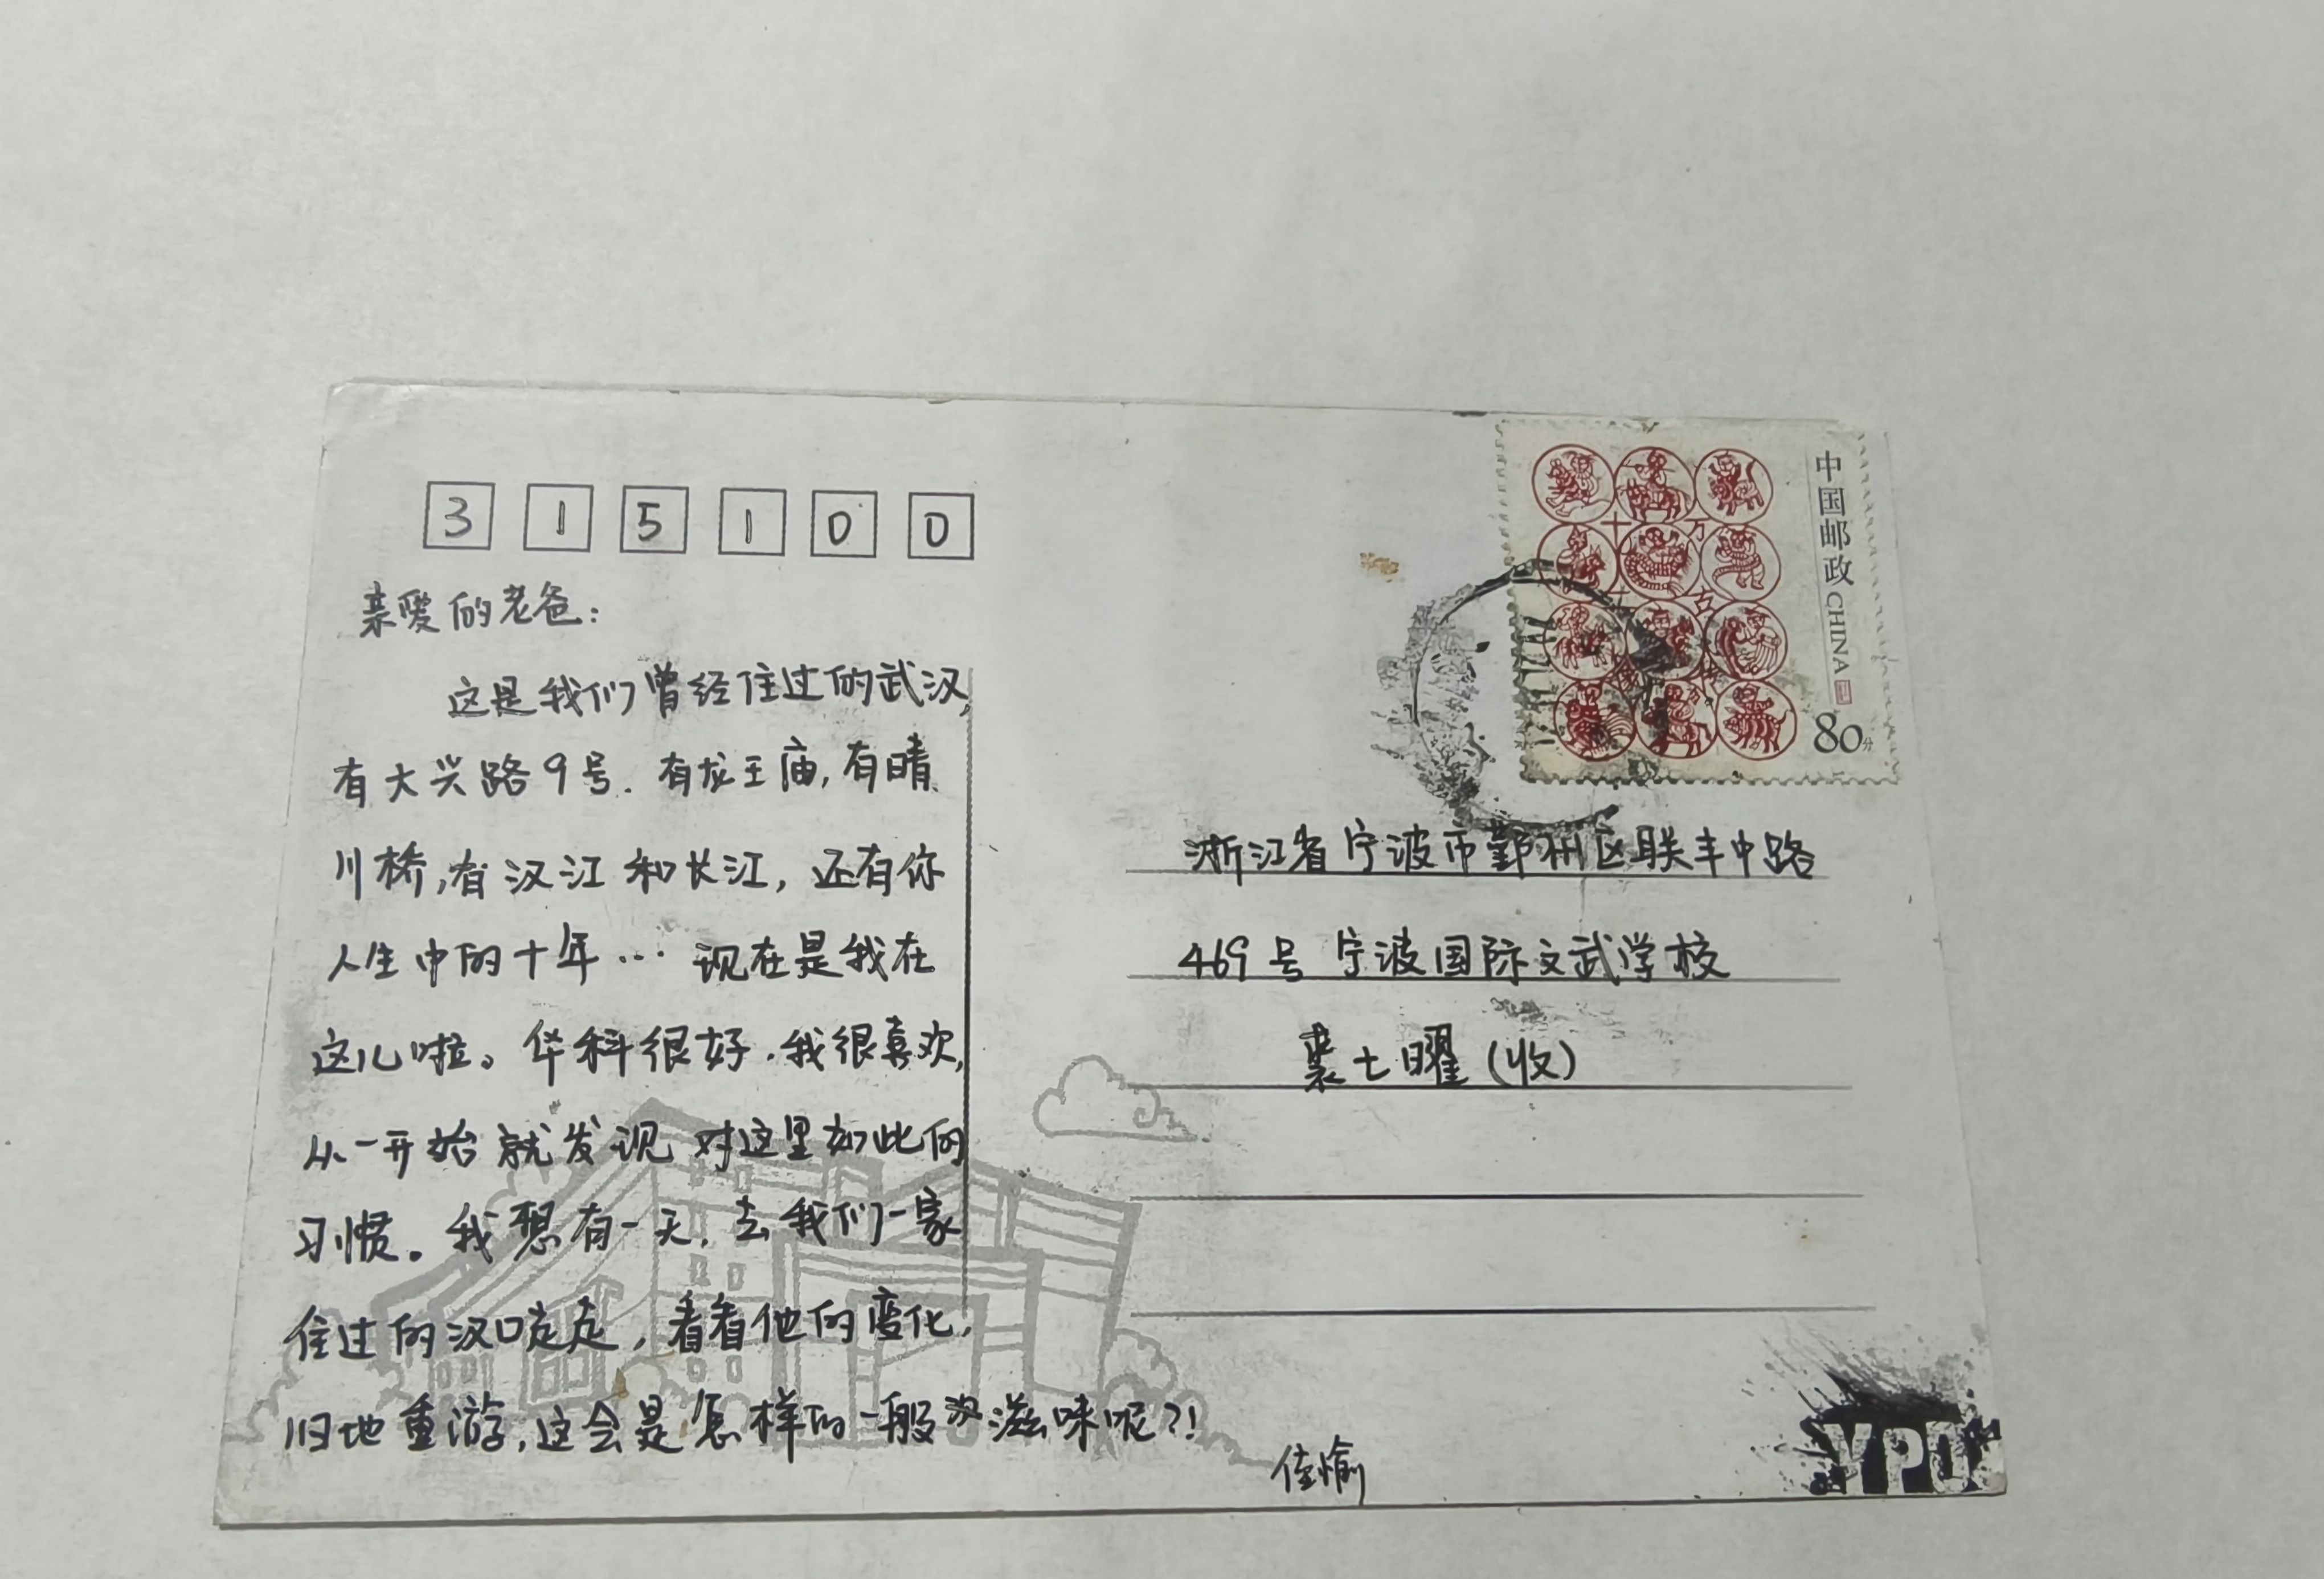 315100
亲爱的老爸：
这是我们曾经住过的武汉，
有大兴路9号．有龙王庙，有晴
川桥，有汉江和长江，还有你
人生中的十年… 现在是我在
这儿啦。华科很好．我很喜欢，
从一开始就发现对这里如此的
习惯。我想有一天，去我们一家
住过的汉口走走，看看他的变化，
旧地重游，这会是怎样的一般滋味呢？！
佳愉
中国邮政 CHINA
80分
浙江省宁波市鄞州区联丰中路
469号 宁波国际文武学校
裘七曜（收）
YPO